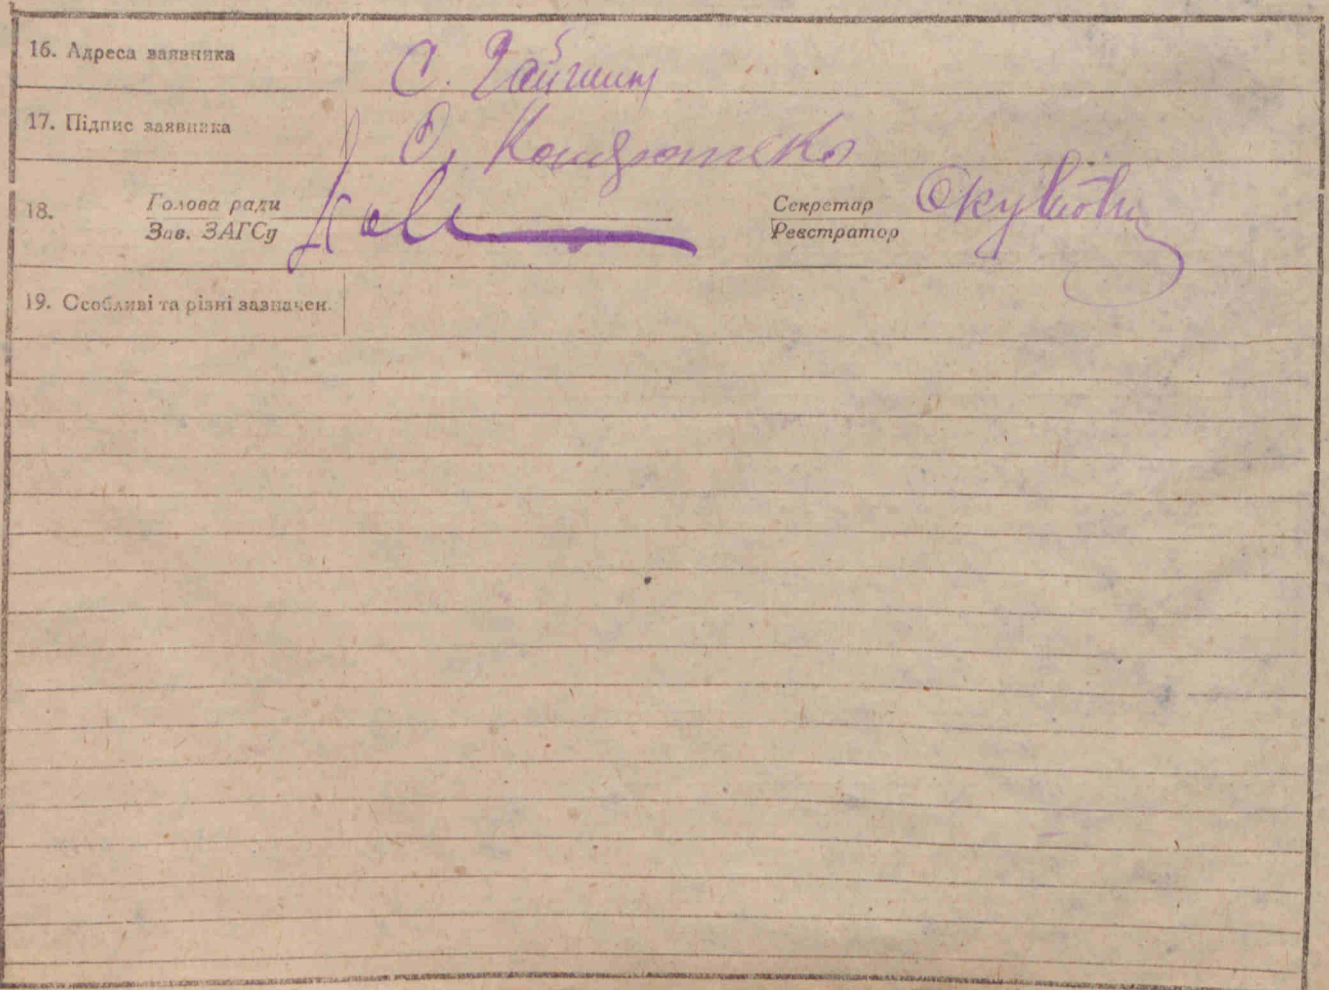 16. Адреса заявника С. Гайшин
17. Підпис заявника О.
18. Голова ради
Зав. ЗАГСу
Секретар
Реєстратор
19. Особливі та різні зазначен.